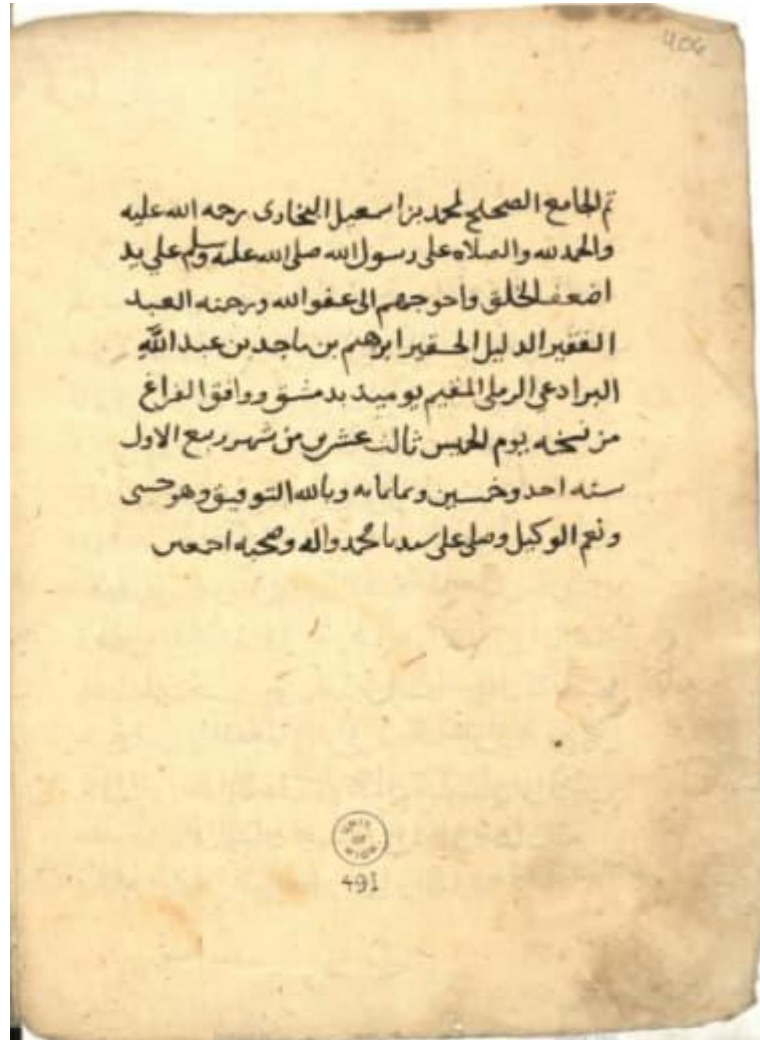 404
تم الجامع الصحيح لمحمد بن اسمعيل البخارى رحمه الله عليه
والحمد لله والصلاه على رسول الله صلى الله عليه وسلم على يد
اضعف الخلق واحوجهم الى عفو الله ورحمته العبد
الفقير الذليل الحقير ابرهيم بن ماجد بن عبد الله
البرادعى الرملى المقيم يوميذ بدمشق ووافق الفراغ
من نسخه يوم الخميس ثالث عشرى من شهر ربيع الاول
سنه احد وخمسين وثمانمائه وبالله التوفيق وهو حسبى
ونعم الوكيل وصلى على سيدنا محمد واله وصحبه اجمعين
UNIV.
OF
MICH.
491